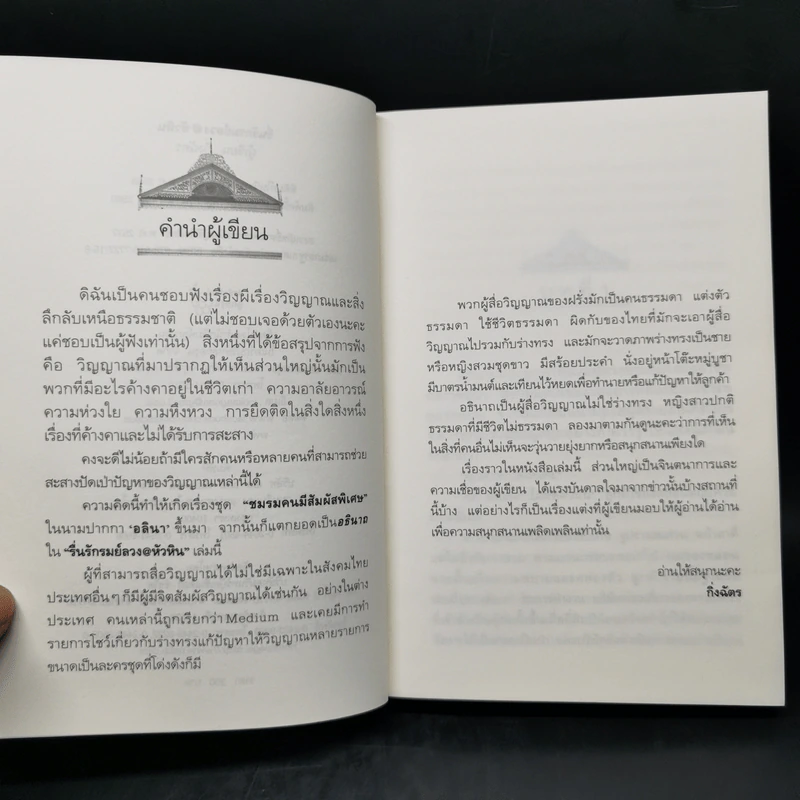 คำนำผู้เขียน
ดิฉันเป็นคนชอบฟังเรื่องผีเรื่องวิญญาณและสิ่ง
ลึกลับเหนือธรรมชาติ (แต่ไม่ชอบเจอด้วยตัวเองนะคะ
แค่ชอบเป็นผู้ฟังเท่านั้น) สิ่งหนึ่งที่ได้ข้อสรุปจากการฟัง
คือ วิญญาณที่มาปรากฏให้เห็นส่วนใหญ่นั้นมักเป็น
พวกที่มีอะไรค้างคาอยู่ในชีวิตเก่า ความอาลัยอาวรณ์
ความห่วงใย ความหึงหวง การยึดติดในสิ่งใดสิ่งหนึ่ง
เรื่องที่ค้างคาและไม่ได้รับการสะสาง
คงจะดีไม่น้อยถ้ามีใครสักคนหรือหลายคนที่สามารถช่วย
สะสางปัดเป่าปัญหาของวิญญาณเหล่านี้ได้
ความคิดนี้ทำให้เกิดเรื่องชุด “ชมรมคนมีสัมผัสพิเศษ”
ในนามปากกา ‘อลินา’ ขึ้นมา จากนั้นก็แตกยอดเป็นอธินาถ
ใน “รื่นรักรมย์ลวง@หัวหิน” เล่มนี้
ผู้ที่สามารถสื่อวิญญาณได้ไม่ใช่มีเฉพาะในสังคมไทย
ประเทศอื่นๆ ก็มีผู้มีจิตสัมผัสวิญญาณได้เช่นกัน อย่างในต่าง
ประเทศ คนเหล่านี้ถูกเรียกว่า Medium และเคยมีการทำ
รายการโชว์เกี่ยวกับร่างทรงแก้ปัญหาให้วิญญาณหลายรายการ
ขนาดเป็นละครชุดที่โด่งดังก็มี
พวกผู้สื่อวิญญาณของฝรั่งมักเป็นคนธรรมดา แต่งตัว
ธรรมดา ใช้ชีวิตธรรมดา ผิดกับของไทยที่มักจะเอาผู้สื่อ
วิญญาณไปรวมกับร่างทรง และมักจะวาดภาพว่าร่างทรงเป็นชาย
หรือหญิงสวมชุดขาว มีสร้อยประคำ นั่งอยู่หน้าโต๊ะหมู่บูชา
มีบาตรน้ำมนต์และเทียนไว้หยดเพื่อทำนายหรือแก้ปัญหาให้ลูกค้า
อธินาถเป็นผู้สื่อวิญญาณไม่ใช่ร่างทรง หญิงสาวปกติ
ธรรมดาที่มีชีวิตไม่ธรรมดา ลองมาตามกันดูนะคะว่าการที่เห็น
ในสิ่งที่คนอื่นไม่เห็นจะวุ่นวายยุ่งยากหรือสนุกสนานเพียงใด
เรื่องราวในหนังสือเล่มนี้ ส่วนใหญ่เป็นจินตนาการและ
ความเชื่อของผู้เขียน ได้แรงบันดาลใจมาจากข่าวนั้นบ้างสถานที่
นี้บ้าง แต่อย่างไรก็เป็นเรื่องแต่งที่ผู้เขียนมอบให้ผู้อ่านได้อ่าน
เพื่อความสนุกสนานเพลิดเพลินเท่านั้น
อ่านให้สนุกนะคะ
กิ่งฉัตร